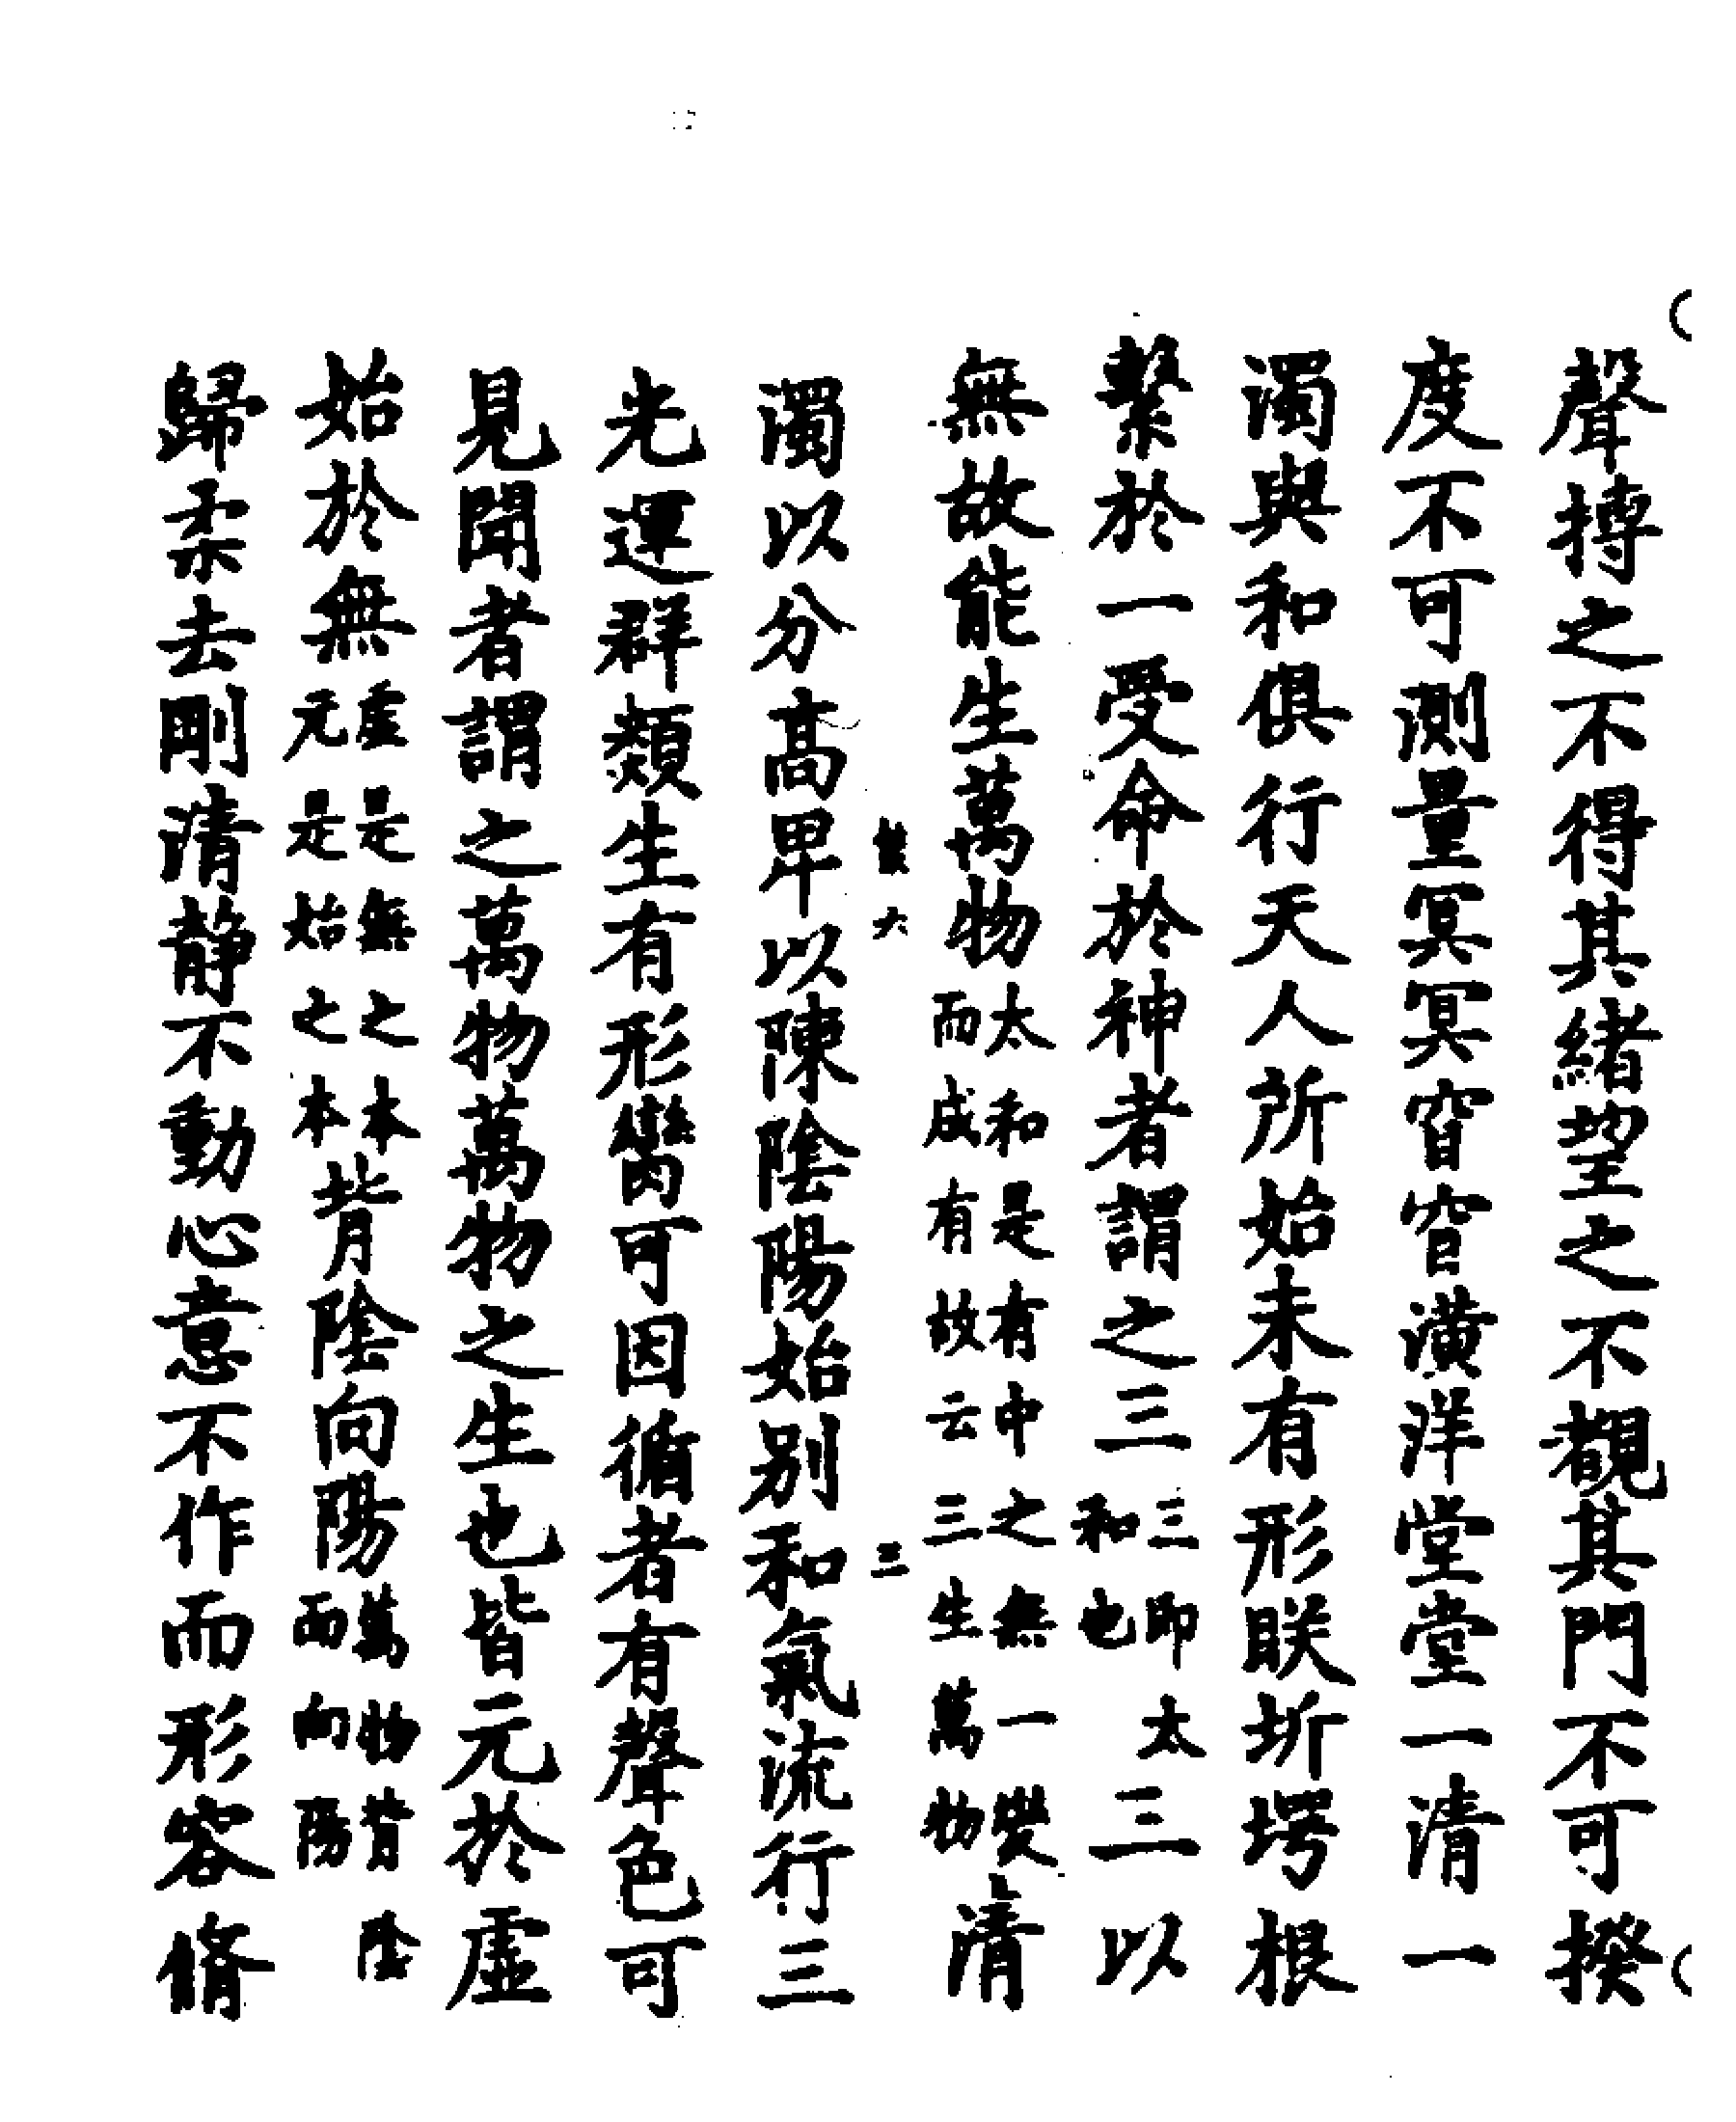 聲摶之不得其緒望之不覩其門不可揆
度不可測量冥冥窅窅潢洋堂堂一清一
濁與和俱行天人所始未有形朕圻堮根
繫於一受命於神者謂之三三即太和也三以
無故能生萬物太和是有中之無一變而成有故云三生萬物清
六
三
濁以分高卑以陳陰陽始別和氣流行三
光運群類生有形臠可因循者有聲色可
見聞者謂之萬物萬物之生也皆元於虛
始於無虛是無之本元是始之本背陰向陽萬物背陰而向陽
歸柔去剛清靜不動心意不作而形容脩